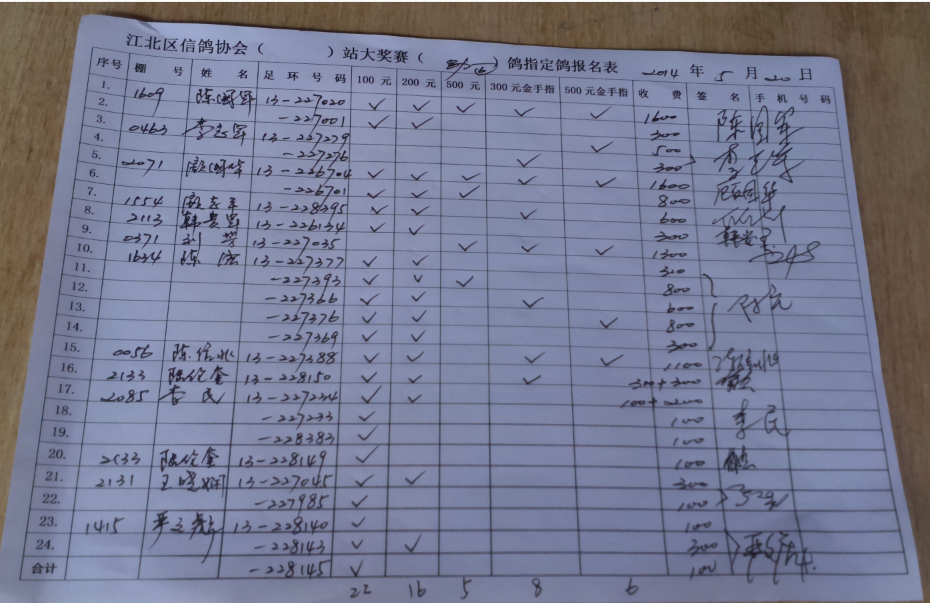 江北区信鸽协会（ ）站大奖赛（ ）鸽指定鸽报名表 2014 年 5 月 20 日
序号 棚 号 姓 名 足 环 号 码 100 元 200 元 500 元 300 元金手指 500 元金手指 收 费 签 名 手 机 号 码
1. 1609 陈国军 13-227020 ✓ ✓ ✓ ✓ ✓ 1600
2. -227001 ✓ ✓ 300
3. 0463 李志军 13-227279 ✓ 500
4. -227276 ✓ 300
5. 2071 顾国华 13-226704 ✓ ✓ ✓ ✓ ✓ 1600
6. -226701 ✓ ✓ ✓ 800
7. 1554 13-228295 ✓ ✓ ✓ 600
8. 2113 韩贵军 13-226134 ✓ ✓ 300
9. 0371 刘 13-227035 ✓ ✓ ✓ 1300
10. 1634 陈宏 13-227377 ✓ ✓ 300
11. -227393 ✓ ✓ ✓ 800
12. -227366 ✓ ✓ ✓ 600
13. -227376 ✓ ✓ ✓ 800
14. -227369 ✓ ✓ 300
15. 0056 陈 13-227388 ✓ ✓ ✓ ✓ 1100
16. 2133 陆伦奎 13-228150 ✓ ✓ ✓ 300+300
17. 2085 李民 13-227234 ✓ ✓ 100+200
18. -227233 ✓ 100 李民
19. -228383 ✓ 100
20. 2133 陆伦奎 13-228149 ✓ 100
21. 2131 王晓娴 13-227045 ✓ ✓ 300
22. -227985 ✓ 100
23. 1415 严 13-228140 ✓ 100
24. -228143 ✓ ✓ 300
合计 -228145 ✓ 100
22 16 5 8 6